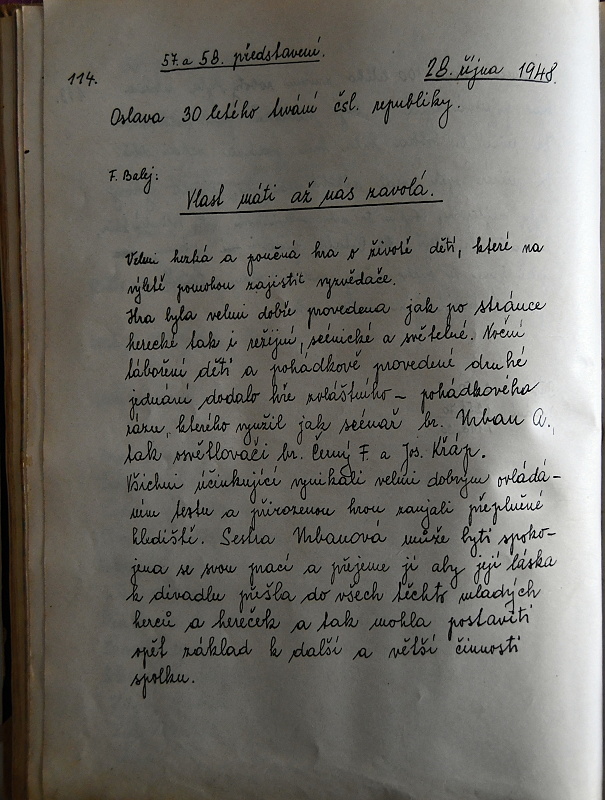 57. a 58. představení.
114.
28. října 1948.
Oslava 30 letého trvání čsl. republiky.
F. Balej:
Vlast máti až nás zavolá.
Velmi hezká a poučná hra o životě dětí, které na
výletě pomohou zajistit vyzvědače.
Hra byla velmi dobře provedena jak po stránce
herecké tak i režijní, scénické a světelné. Noční
táboření dětí a pohádkově provedené druhé
jednání dodalo hře zvláštního – pohádkového
rázu, kterého využil jak scénař br. Urban A.,
tak osvětlovači br. Černý F. a Jos. Křáp.
Všichni účinkující vynikali velmi dobrým ovládá-
ním textu a přirozenou hrou zaujali přeplněné
hlediště. Sestra Urbanová může býti spoko-
jena se svou prací a přejeme jí aby její láska
k divadlu přešla do všech těchto mladých
herců a hereček a tak mohla postaviti
opět základ k další a větší činnosti
spolku.